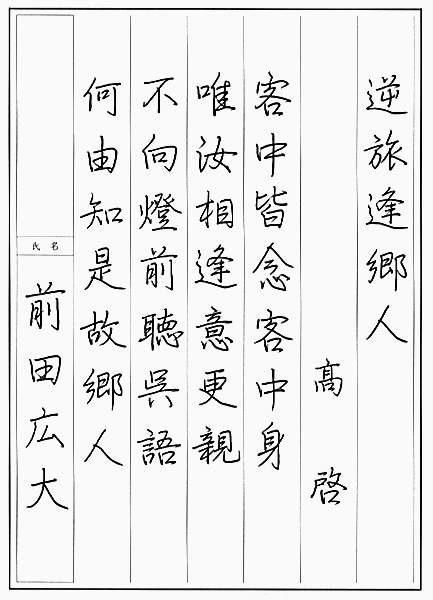 逆旅逢郷人
高啓
客中皆念客中身
唯汝相逢意更親
不向燈前聴呉語
何由知是故郷人
氏名
前田広大